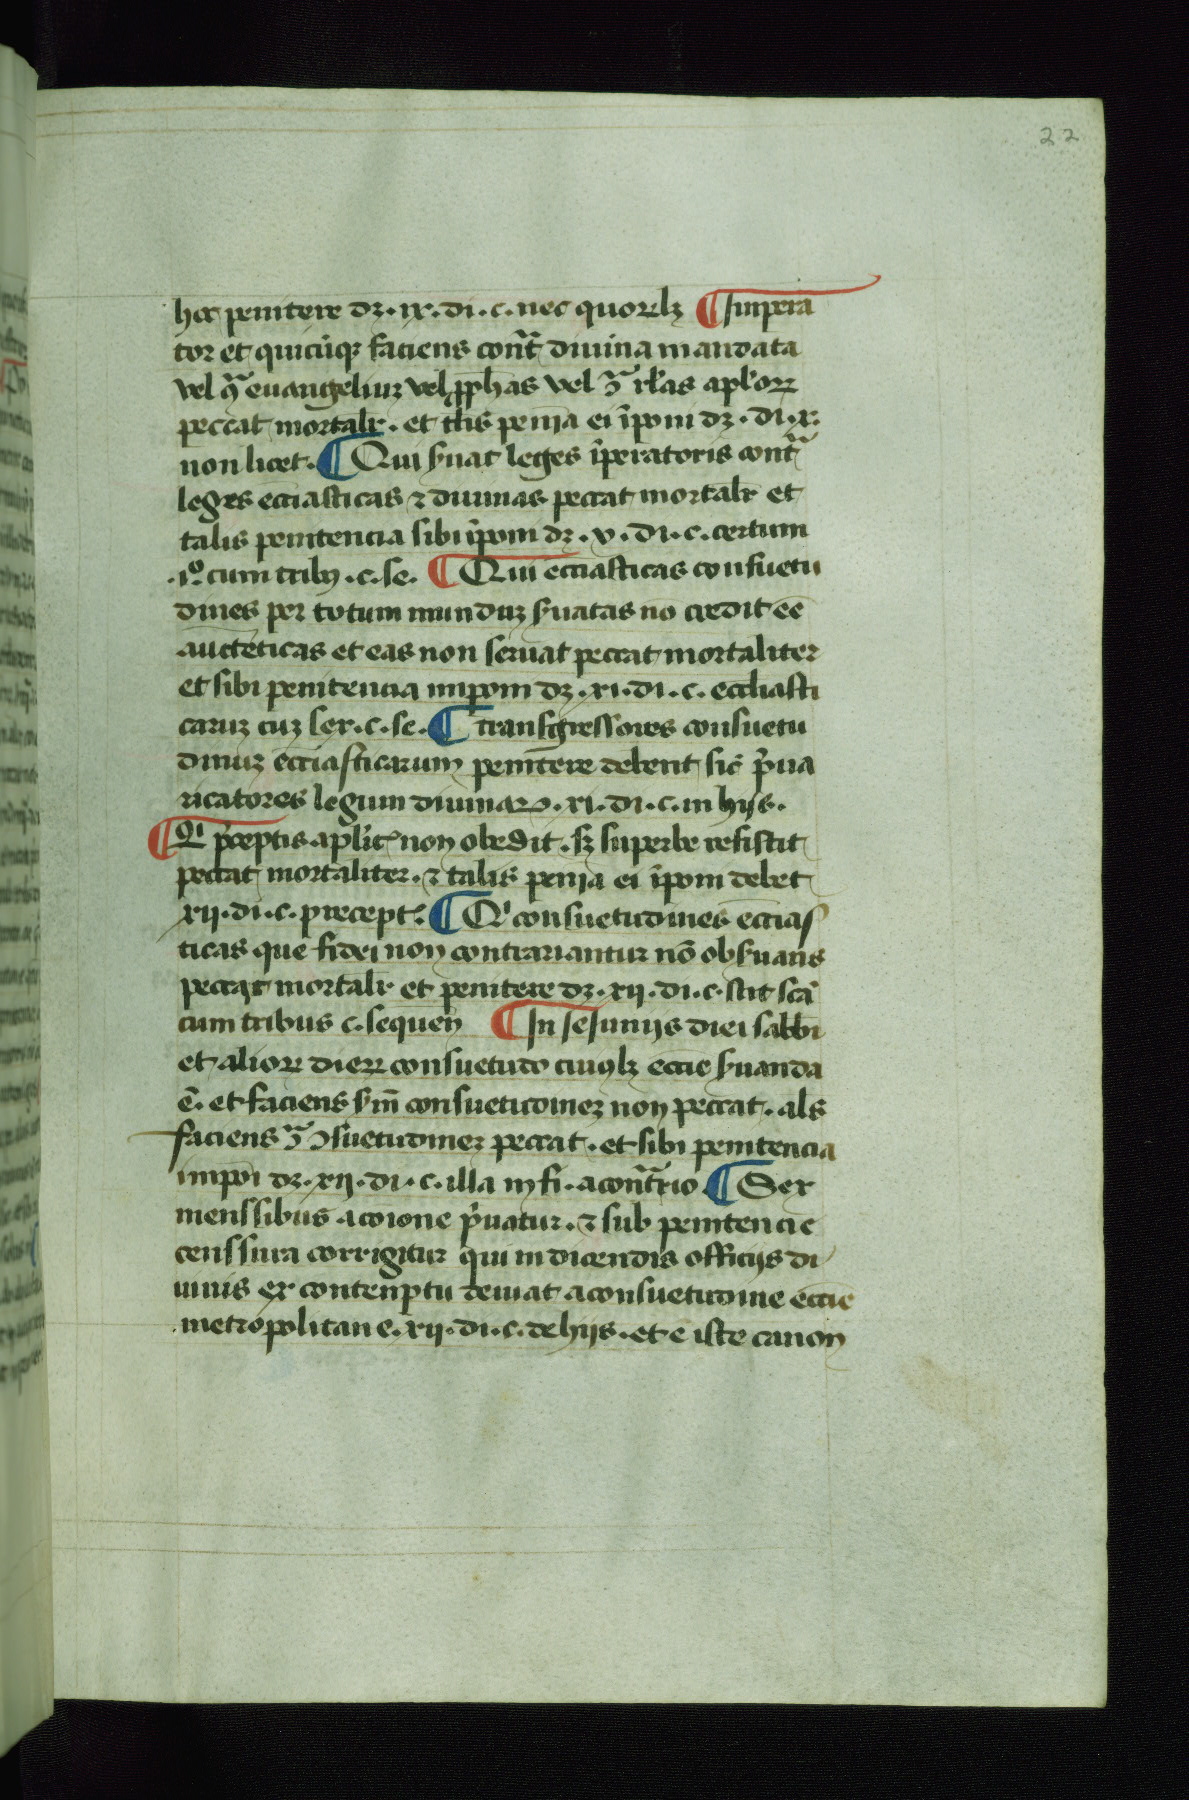 22
hoc penitere dꝫ · ix · di · c · nec quorūlꝫ ¶ Impera
tor et quicūqꝫ faciens cont̃ diuina mandata
vel ꝯ̃ euangeliuꝫ vel ꝓph̃as vel ꝯ̃ rl̃as apl̃oꝝ
peccat mortalr̃ · et tl̃is penīa ei īponi dꝫ · di · x ·
non licet · ¶ Qui ẜuat leges īperatoris cont̃
leges eccīasticas ⁊ diuinas peccat mortalr̃ et
talis penitencia sibi īponi dꝫ · v · di · c · certum
· 1º · cum tribꝰ · c · se · ¶ Qui eccīasticas consuetu
dines per totum munduꝫ ẜuatas nō credit eē
auctēticas et eas non seruat peccat mortaliter
et sibi penitencia imponi dꝫ · xi · di · c · eccl̃iasti
caruꝫ cuꝫ sex · c · se · ¶ transgressores consuetu
dinuꝫ eccīasticarum penitere debent sic̄ p̄ua
ricatores legum diuinaꝝ · xi · di · c · in hijs ·
¶ Qi p̄ceptis apl̃ic̄ non obedit · sꝫ superbe resistit
peccat mortaliter · ⁊ talis penīa ei īponi debet
xij · di · c · precept̃ · ¶ Qi consuetudines eccīas
ticas que fidei non contrariantur nō obẜuans
peccat mortalr̃ et penitere dꝫ · xij · di · c · sīt scā
cum tribus c · sequen̄ ¶ In Ieiunijs diei sabb̄i
et alioꝝ dieꝝ consuetudo cuiꝰlꝫ eccīe ẜuanda
ē · et faciens ẜm̄ consuetudineꝫ non peccat · als
faciens ꝯ̃ ꝯsuetudineꝫ peccat · et sibi penitencia
impōi dꝫ · xij · di · c · illa in fi · a cont̃rio ¶ Sex
menssibus a coīone p̄uatur · ⁊ sub penitencie
censsura corrigitur qui in dicendis officijs di
uinis ex contemptu deuiat a consuetudine eccīe
metropolitane · xij · di · c · de hijs · et ē iste canon